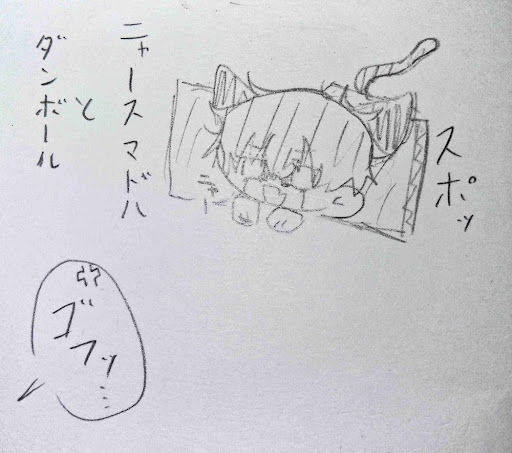 スポッ
ニャー
ニャースマドハ
と
ダンボール
ゴフッ…